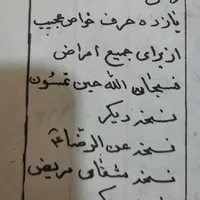 یازده حرف خواص عجیب
از برای جمیع امراض
فسبحان الله حین تمسون
نسخه دیگر
نسخه عن الرضا ع
نسخه شفای مریض